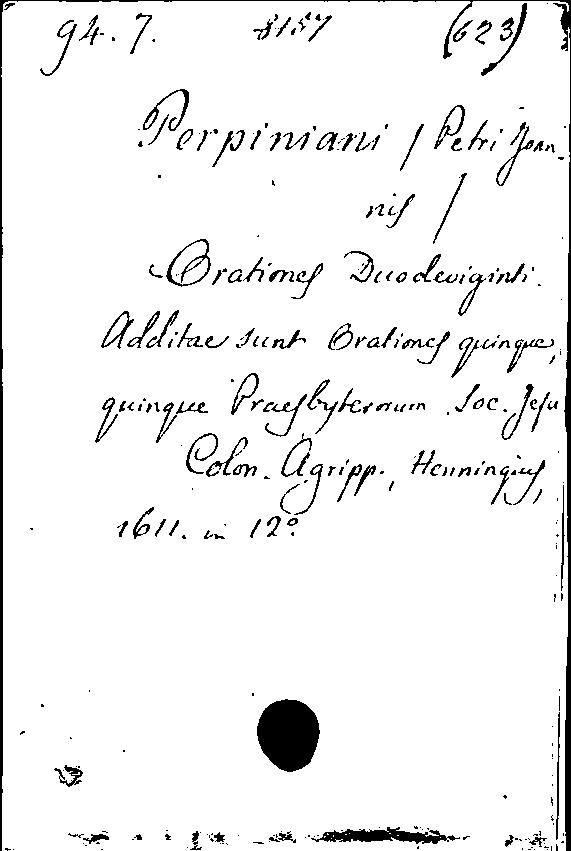 94. 7. 8157 (623)
Perpiniani / Petri Joan-
nis /
Orationes Duodeviginti.
Additae sunt Orationes quinque,
quinque Praesbyterorum Soc. Jesu
Colon. Agripp., Henningius,
1611. in 12°